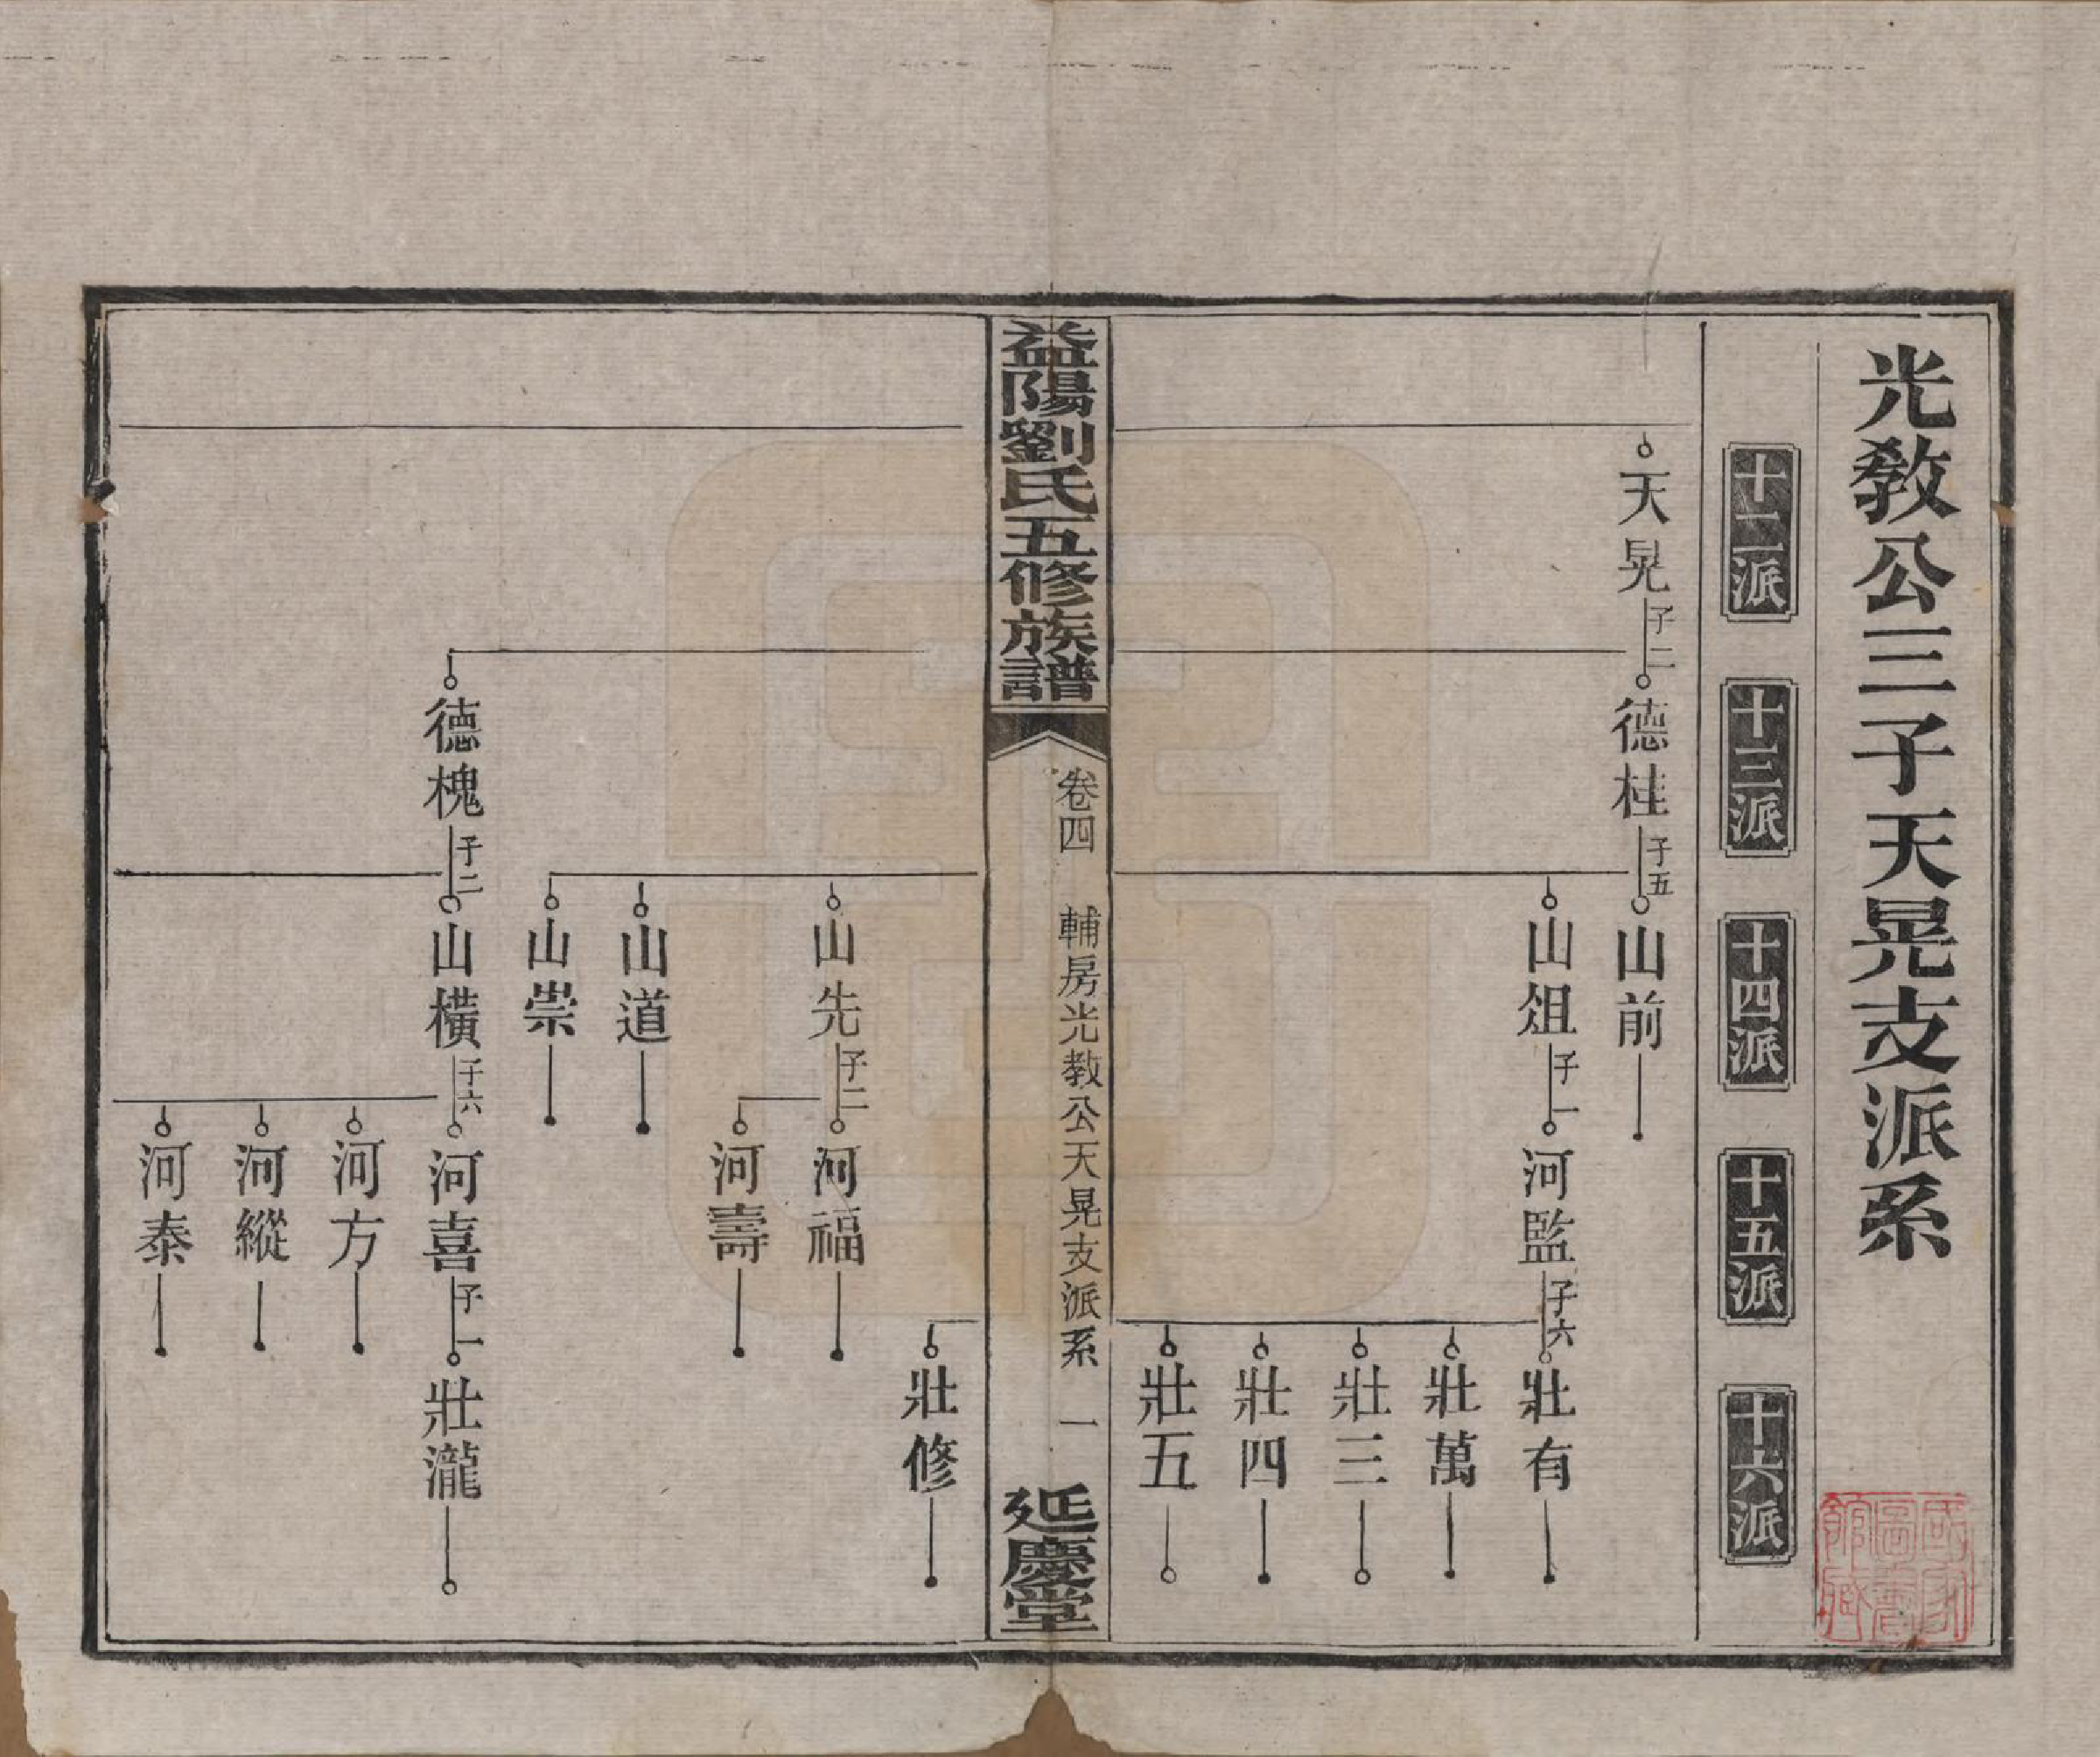 光教公三子天晃支派系
十二派
十三派
十四派
十五派
十六派
天晃
子二
德桂
子五
山前
山俎
子一
河監
子六
壯有
壯萬
壯三
壯四
壯五
益陽劉氏五修族譜
卷四
輔房光教公天晃支派系
一
延慶堂
壯修
山先
子二
河福
河壽
山道
山崇
德槐
子二
山橫
子六
河喜
子一
壯瀧
河方
河縱
河泰
國家圖書館藏